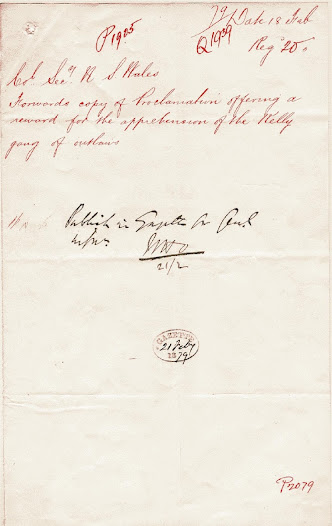 79 Date 18 Feb
P1905 Q1909 Reg 20
Col Secy N S Wales
Forwards copy of Proclamation offering a
reward for the apprehension of the Kelly
gang of outlaws
Publish in Gazette for Genl
infn
21/2
GAZETTE
21 Feby
1879
P2079